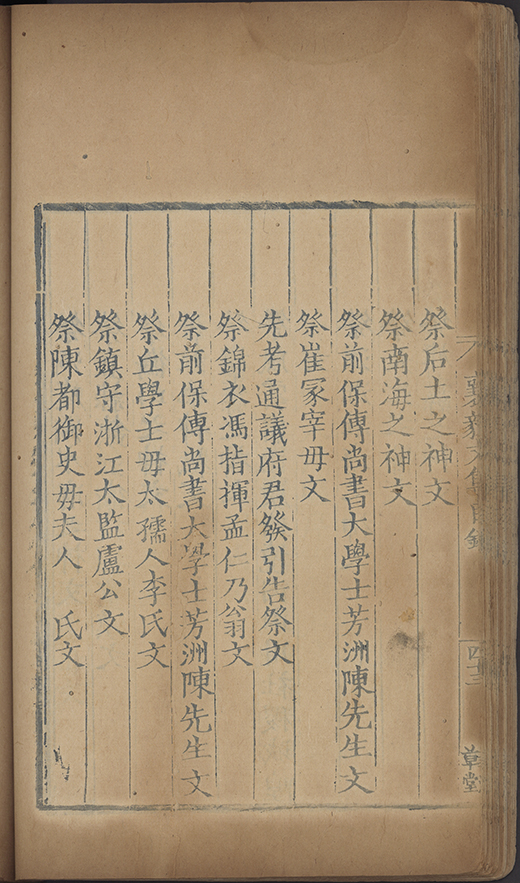 祭后土之神文
祭南海之神文
祭前保傅尚書大學士芳洲陳先生文
祭崔冢宰母文
先考通議府君發引告祭文
祭錦衣馮指揮孟仁乃翁文
祭前保傅尚書大學士芳洲陳先生文
祭丘學士母太孺人李氏文
祭鎮守浙江太監盧公文
祭陳都御史母夫人 氏文
襄毅文集目錄
草堂